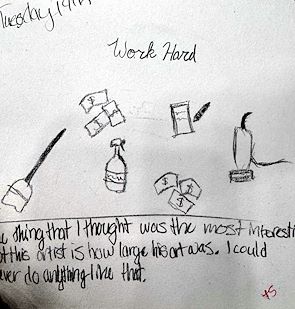 Tuesday 19th
Work Hard
$ $
$ $
thing that I thought was the most interesti
this artist is how large his art was. I could
ver do anything like that.
+5